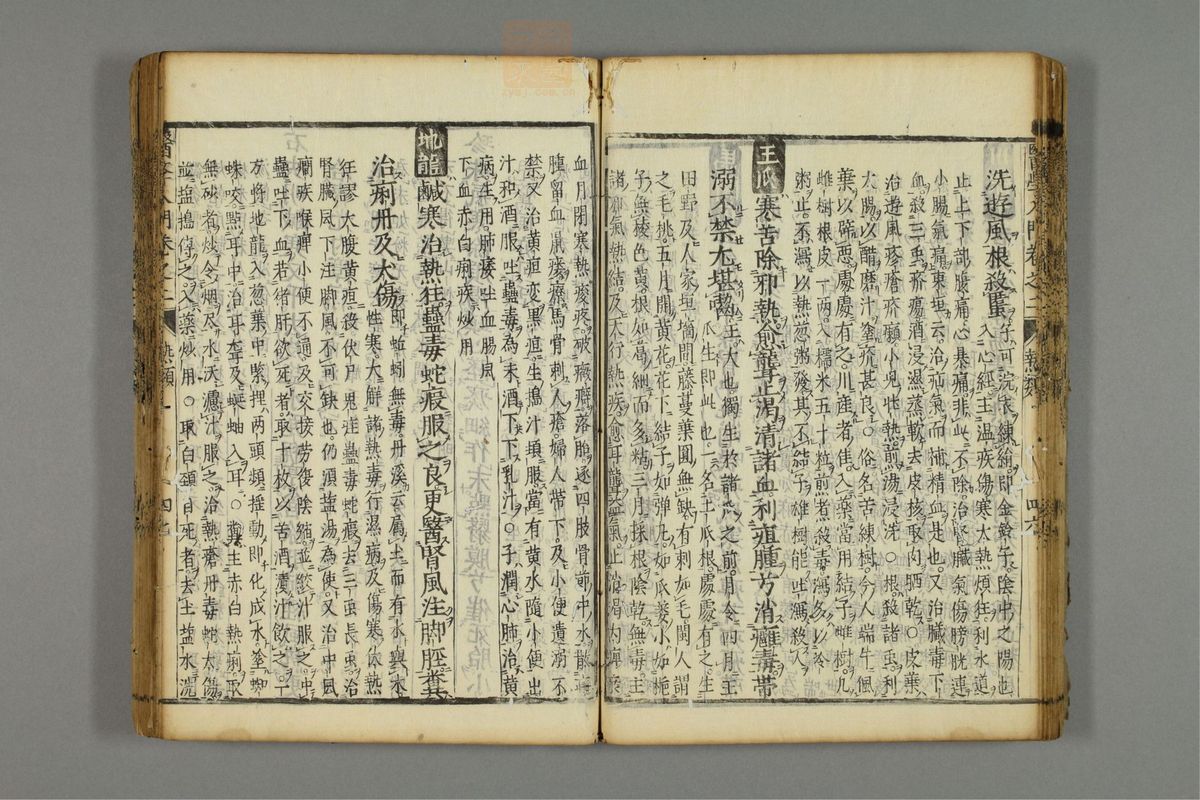 洗遊風根殺䘌入心經主温疾傷寒太熱煩狂利水道
止上下部腹痛心暴痛非此不除治腎臟氣傷膀胱連
小腸氣痛東垣云治疝氣而補精血是也又治臟毒下
血殺三虫疥瘍酒浸濕蒸軟去皮核取肉晒乾○皮葉
治遊風疹瘡疥癩小兒壯熱煎湯浸洗○根殺諸虫利
大腸以醋磨汁塗疥甚良○俗名苦練樹今人端午佩
葉以辟惡處處有之川産者佳入藥當用結子雌樹凡
雌樹根皮一兩入糯米五十粒煎煮殺毒瀉多以冷
粥止不瀉以熱葱粥發其不結子雄樹能吐瀉殺人
王瓜寒苦除邪熱愈聾止渴清諸血利疽腫兮消癰毒帶
溺不禁尤堪啜王大也獨生於諸瓜之前月令四月王
瓜生即此也一名土瓜根處處有之生
田野及人家垣墻間藤蔓葉圓無缺有刺如毛閩人謂
之毛桃五月開黄花花下結子如彈丸如瓜蔞小如梔
子無稜色黄根如葛細而多糝三月採根陰乾無毒主
諸邪氣熱結及天行熱疾愈耳聾益氣止消渴内痺瘀
血月閉寒熱痠疼破癥癖落胎逐四肢骨節中水散癰
腫留血鼠瘻療馬骨刺人瘡婦人帶下及小便遺溺不
禁又治黄疸變黒疸生搗汁頓服當有黄水隨小便出
汁和酒服吐蠱毒為末酒下下乳汁○子潤心肺治黄
病生用肺痿吐血腸風
下血赤白痢疾炒用
地龍鹹寒治熱狂蠱毒蛇瘕服之良更醫腎風注脚脛糞
治痢丹及犬傷即蚯蚓無毒丹溪云屬土而有水與木
性寒大解諸熱毒行濕病及傷寒伏熱
狂謬大腹黄疸殺伏尸鬼疰蠱毒蛇瘕去三虫長虫治
腎臟風下注脚風不可缺也仍須鹽湯為使又治中風
癇疾喉痺小便不通及交接勞復陰縮並絞汁服之中
蠱吐下血若緒肝欲死者取十枚以苦酒漬汁飲之一
方將地龍入葱葉中緊捏兩頭頻搖動即化成水塗蜘
蛛咬點耳中治耳聾及蜒蚰入耳○糞主赤白熱痢取
無砂者炒令烟尽水沃濃汁服之治熱瘡丹毒蛇犬傷
並鹽搗傅之入藥炒用○取白頸自死者去土鹽水洗